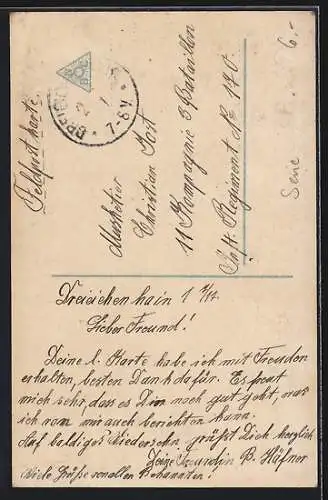 Feldpostkarte
Musketier
Christian Jost
11 Kompagnie 3 Bataillon
Inf. Regiment № 170.
Serie 6.-
BOC
7-8 V.
Dreieichenhain 1
Lieber Freund!
Deine l. Karte habe ich mit Freuden
erhalten, besten Dank dafür. Es freut
mich sehr, dass es Dir noch gut geht, was
ich von mir auch berichten kann.
Auf baldiges Wiedersehn grüßt Dich herzlich
Deine Freundin B. Häfner
Viele Grüße von allen Bekannten!